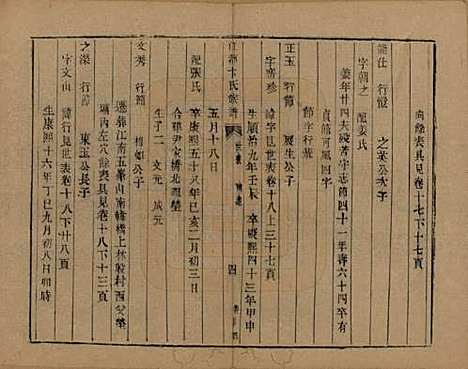 向餘喪具見卷十七下十七頁
龍仕 行愷 之菜公次子
字朝之 配姜氏
姜年廿四夫殁苦守志節四十一年壽六十四卒有
貞節可風四字
節字行愷
正玉 行節 屢生公子
字席珍 餘字見世表卷十八上三十七頁
生順治九年壬辰 卒康熙四十三年甲申
五月十八日
江都卞氏族譜
四
配張氏 卒康熙五十八年己亥二月初三日
合葬尹家橋北祖塋
生子二 文元 成元
文秀 行節 相如公子
遷葬江南五峯山南韓橋上林殿村西父塋
塋內左穴餘表具見卷十八下十三頁
之深 行節 東玉公長子
字文山 籍行見世表卷十八下廿八頁
生康熙十六年丁巳九月初八日卯時